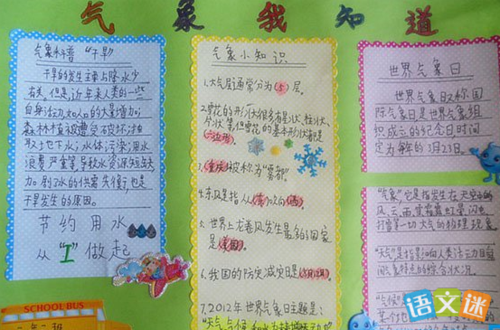 气象我知道
气象科普“干旱”
干旱的发生主要与降水少
有关。但是,近年来人类的一些
自身活动,如人口的大量增加,
森林植被遭受破坏,过度抽
取地下水,水体污染,用水
浪费严重等,导致水资源短缺
加剧了水的供需失衡,也是
干旱发生的原因。
节约用水
从“1”做起
SCHOOL BUS
气象小知识
1.大气层通常分为(5)层。
2.雪花的形状很多有星状、柱状、
片状等,但雪花的基本形状都是
(六边形)。
3.(重庆)被称为“雾都”。
4.东风是指从(东)吹向(西)
5.世界上龙卷风发生最多的国家
是(美国)。
6.我国的防灾减灾日是
7.2012年世界气象日主题是:
世界气象日
世界气象日又称国
际气象日是世界气象组
织成立的纪念日时间
定为每年的3月23日。
“气象”,它是指发生在天空中的
风、云、雨、雪、霜、露、虹、晕、闪电、
打雷等一切大气的物理现象
语文迷